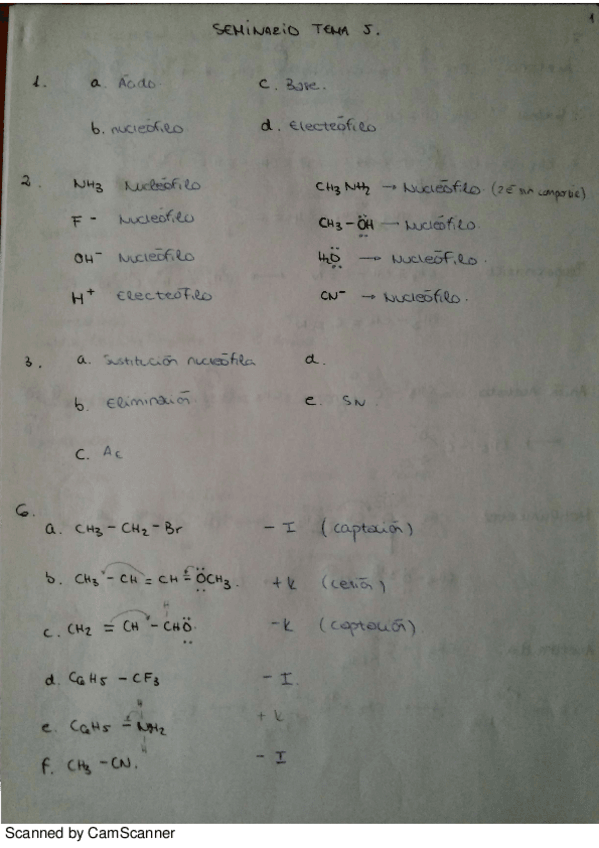 1
SEMINARIO TEMA 5.
1. a. Ácido. c. Base.
b. nucleófilo d. Electrófilo
2. NH3 Nucleófilo CH3 NH2 → Nucleófilo. (2 é sin compartir)
F - Nucleófilo CH3 - ÖH → Nucleófilo.
OH- Nucleófilo H2Ö → Nucleófilo.
H+ Electrófilo CN- → Nucleófilo.
3. a. Sustitución nucleófila d.
b. Eliminación e. SN.
c. Ac
6.
a. CH3 - CH2 - Br - I (captación)
b. CH3 - CH = CH - ÖCH3. + K (cesión)
c. CH2 = CH - CHÖ. - K (captación)
d. C6H5 - CF3 - I.
e. C6H5 - NH2 + K
f. CH3 - CN. - I
Scanned by CamScanner